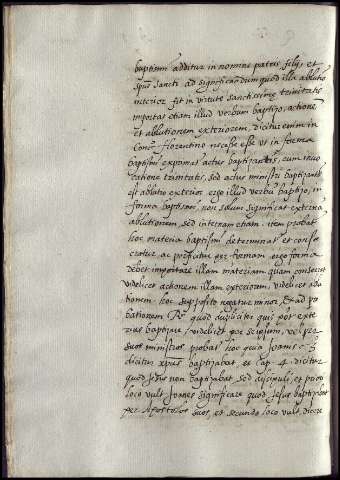 baptismi additur in nomine patris filij, et
spūs sancti ad significandum quod illa ablutio
interior fit in virtute sanctissimę trinitatis
importat etiam illud verbum baptizo, actionē
et ablutionem exteriorem, dicitur enim in
Conc. florentino necesse esse ut in forma
baptismi exponatur actus baptizantis, cum invo
catione trinitatis, sed actus ministri baptizantis
est ablutio exterior ergo illud verbū baptizo, in
forma baptismi non solum significat externā
ablutionem, sed internam etiam. item probat
hoc materia baptismi determinatur et conse
cratur, ac perficitur per formam ergo forma
debet importare illam materiam quam consecrat
videlicet actionem illam exteriorem, videlicet ablu
tionem hoc supposito negatur minor. Et ad pro
bationem Rx quod dupliciter quis potest exte
rius baptizare, videlicet per seipsum, vel per
suos ministros probat hoc quia Joannis c. 3
dicitur xp̄us baptizabat, et cap. 4. dicitur
quod Jesus non baptizabat sed discipuli, et primo
loco vult Joannes significare quod Jesus baptizabat
per Apostolos suos, et secundo loco vult, dicere